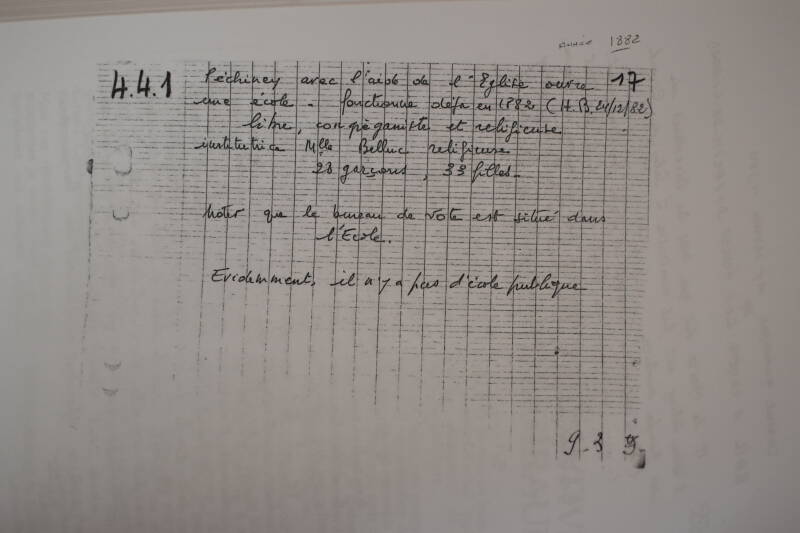 Année 1882
4.4.1 Péchiney avec l'aide de l'Eglise ouvre 17
une école - fonctionne déjà en 1882 (H.B. 24/12/82)
libre, congréganiste et religieuse
institutrice Mlle Belluc religieuse
28 garçons, 33 filles-
Noter que le bureau de vote est situé dans
l'Ecole.
Evidemment, il n'y a pas d'école publique
9-3